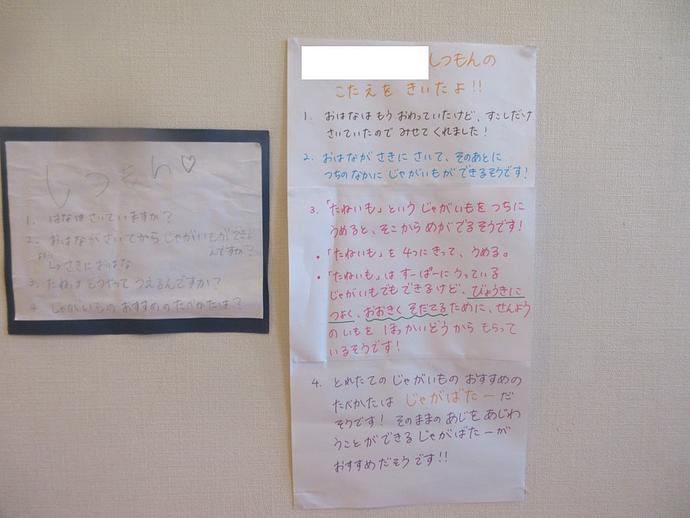 しつもん♡
1. はなはさいていますか?
2. おはながさいてからじゃがいもができ
んですか?
さきにおはな
3. たねはどうやってうえるんですか?
4. じゃがいものおすすめのたべかたは?
しつもんの
こたえを きいたよ!!
1. おはなは もう おわっていたけど、すこしだけ
さいていたので みせて くれました!
2. おはなが さきに さいて、そのあとに
つちのなかに じゃがいもが できるそうです!
3. 「たねいも」という じゃがいもを つちに
うめると、そこから めがでる そうです!
・「たねいも」を 4つに きって、うめる。
・「たねいも」は すーぱーに うっている
じゃがいもでも できるけど、びょうきに
つよく、おおきく そだてる ために、せんよう
のいもを ほっかいどう から もらって
いるそうです!
4. とれたての じゃがいもの おすすめの
たべかたは じゃがばたー だ
そうです! そのままの あじを あじわ
うことが できる じゃがばたーが
おすすめだそう です!!